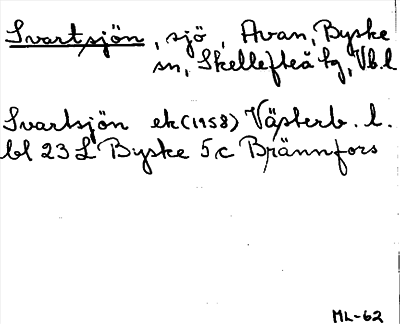 Svartsjön, sjö, Avan, Byske
sn, Skellefteå tg, Vb.l
Svartsjön ek (1958) Västerb. l.
bl 23 L Byske 5c Brännfors
ML-62